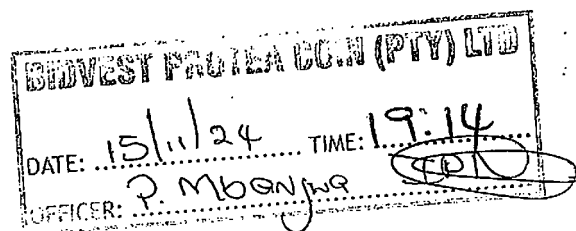 BIDVEST PROTEA COIN (PTY) LTD
DATE: 15/11/24 TIME: 19:14
OFFICER: P. Mbanjwa